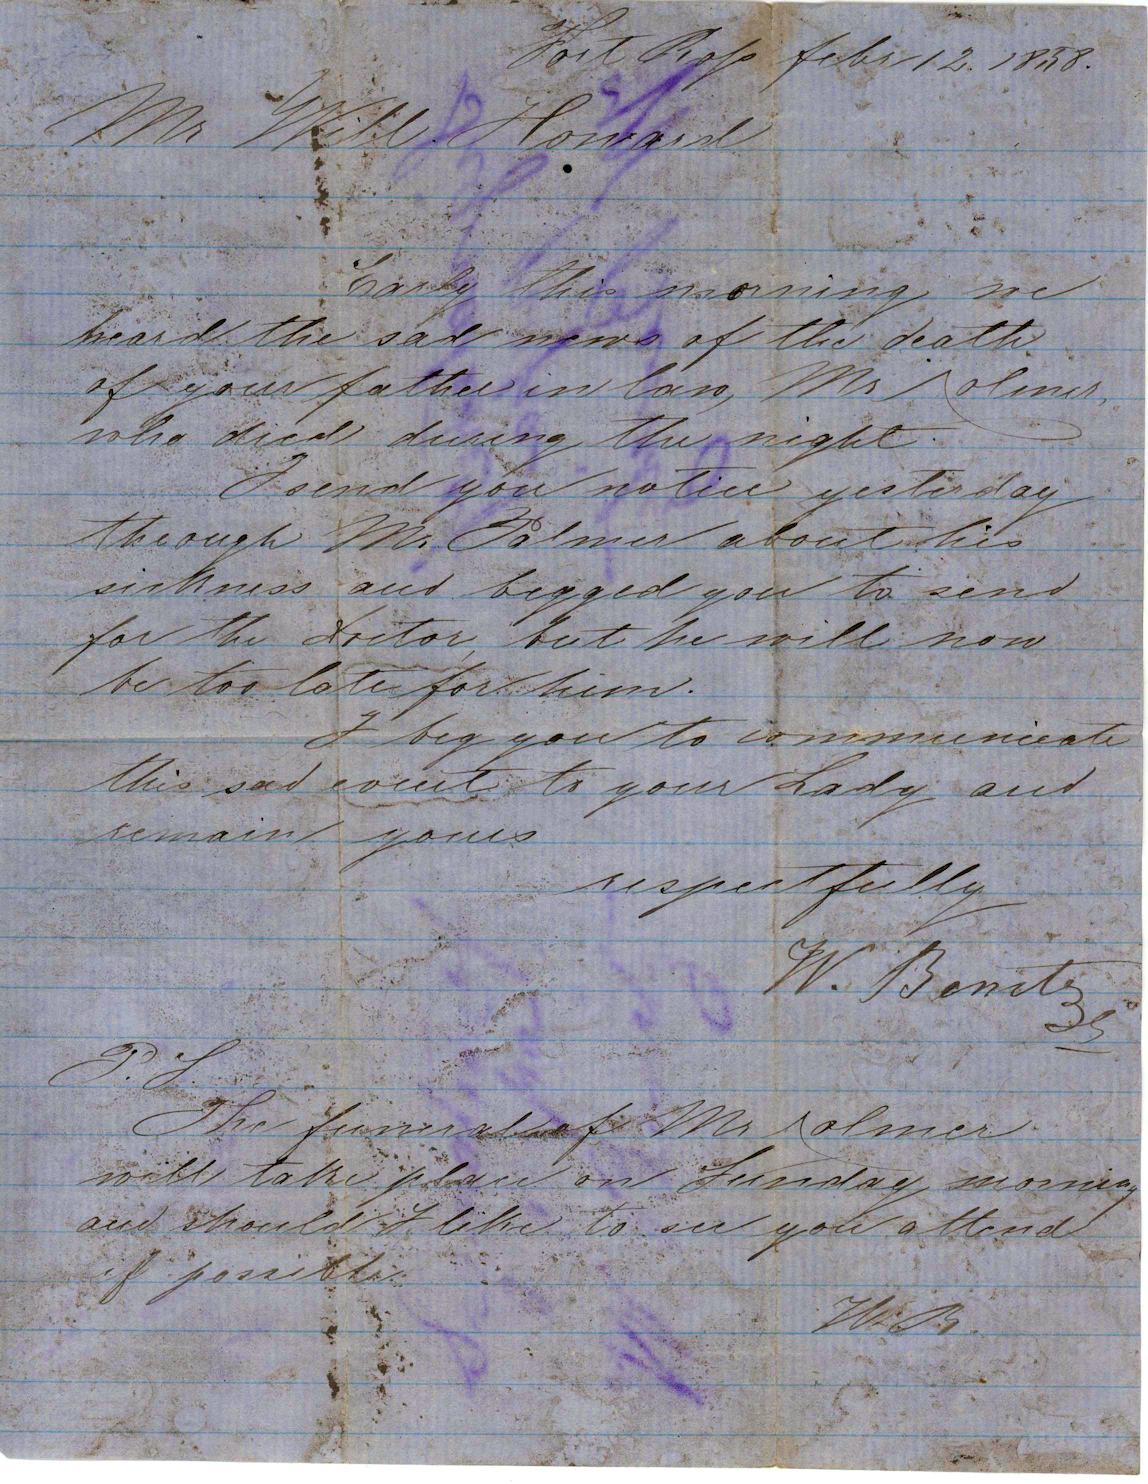 Fort Ross febr 12. 1858.
Mr Will. Howard
Early this morning we
heard the sad news of the death
of your father in law, Mr Kolmer,
who died during the night.
I send you notice yesterday
through Mr. Palmer about his
sickness and begged you to send
for the doctor, but he will now
be too late for him.
I beg you to communicate
this sad event to your Lady and
remain yours
respectfully
W. Benitz
P. S.
The funeral of Mr Kolmer
will take place on Sunday morning
and should I like to see you attend
if possible.
W. B.